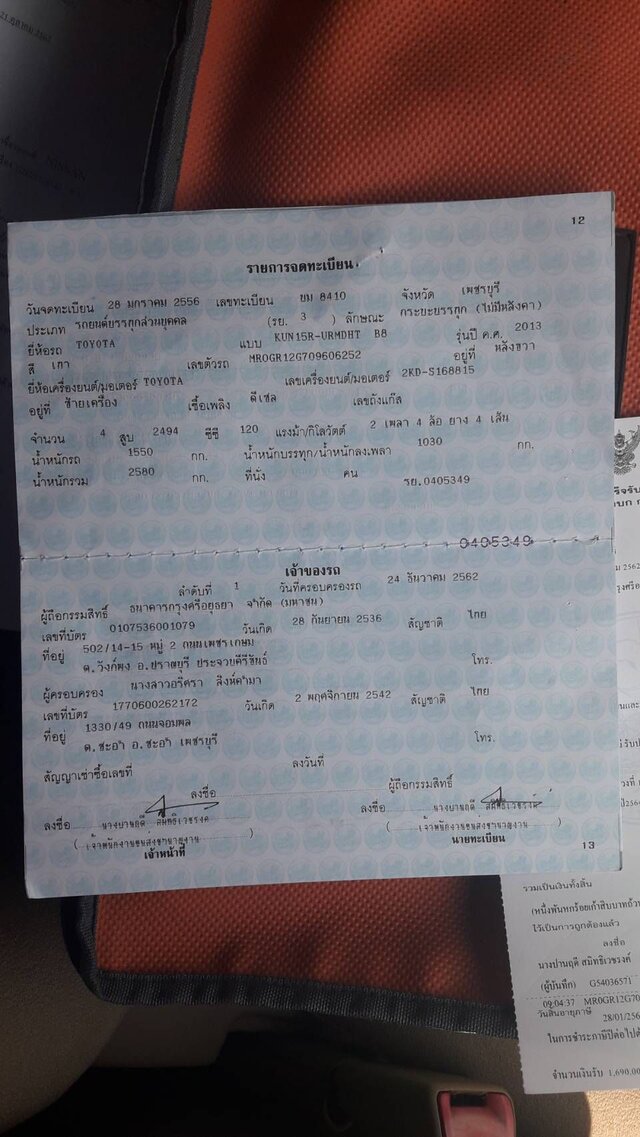 12
รายการจดทะเบียน
วันจดทะเบียน 28 มกราคม 2556 เลขทะเบียน ยม 8410 จังหวัด เพชรบุรี
ประเภท รถยนต์บรรทุกส่วนบุคคล (รย. 3 ) ลักษณะ กระบะบรรทุก (ไม่มีหลังคา)
ยี่ห้อรถ TOYOTA แบบ KUN15R-URMDHT B8 รุ่นปี ค.ศ. 2013
สี เทา เลขตัวรถ MR0GR12G709606252 อยู่ที่ หลังขวา
ยี่ห้อเครื่องยนต์/มอเตอร์ TOYOTA เลขเครื่องยนต์/มอเตอร์ 2KD-S168815
อยู่ที่ ซ้ายเครื่อง เชื้อเพลิง ดีเซล เลขถังแก๊ส
จำนวน 4 สูบ 2494 ซีซี 120 แรงม้า/กิโลวัตต์ 2 เพลา 4 ล้อ ยาง 4 เส้น
น้ำหนักรถ 1550 กก. น้ำหนักบรรทุก/น้ำหนักลงเพลา 1030 กก.
น้ำหนักรวม 2580 กก. ที่นั่ง คน รย.0405349
0405349
เจ้าของรถ
ลำดับที่ 1 วันที่ครอบครองรถ 24 ธันวาคม 2562
ผู้ถือกรรมสิทธิ์ ธนาคารกรุงศรีอยุธยา จำกัด (มหาชน)
เลขที่บัตร 0107536001079 วันเกิด 28 กันยายน 2536 สัญชาติ ไทย
ที่อยู่ 502/14-15 หมู่ 2 ถนนเพชรเกษม
ต.วังก์พง อ.ปราณบุรี ประจวบคีรีขันธ์ โทร.
ผู้ครอบครอง นางสาวอริศรา สิงห์คำมา
เลขที่บัตร 1770600262172 วันเกิด 2 พฤศจิกายน 2542 สัญชาติ ไทย
ที่อยู่ 1330/49 ถนนจอมพล
ต.ชะอำ อ.ชะอำ เพชรบุรี โทร.
สัญญาเช่าซื้อเลขที่ ลงวันที่
ลงชื่อ ผู้ถือกรรมสิทธิ์
ลงชื่อ นางปานฤดี สมิทธิเวชรงค์ ลงชื่อ นางปานฤดี สมิทธิเวชรงค์
( เจ้าพนักงานขนส่งชำนาญงาน ) ( เจ้าพนักงานขนส่งชำนาญงาน )
เจ้าหน้าที่ นายทะเบียน
13
รวมเป็นเงินทั้งสิ้น
(หนึ่งพันหกร้อยเก้าสิบบาทถ้วน
ไว้เป็นการถูกต้องแล้ว
ลงชื่อ
นางปานฤดี สมิทธิเวชรงค์
(ผู้บันทึก) G54036571
09:04:37 MR0GR12G70
วันสิ้นอายุภาษี 28/01/256
ในการชำระภาษีปีต่อไปต้
จำนวนเงินรับ 1,690.00